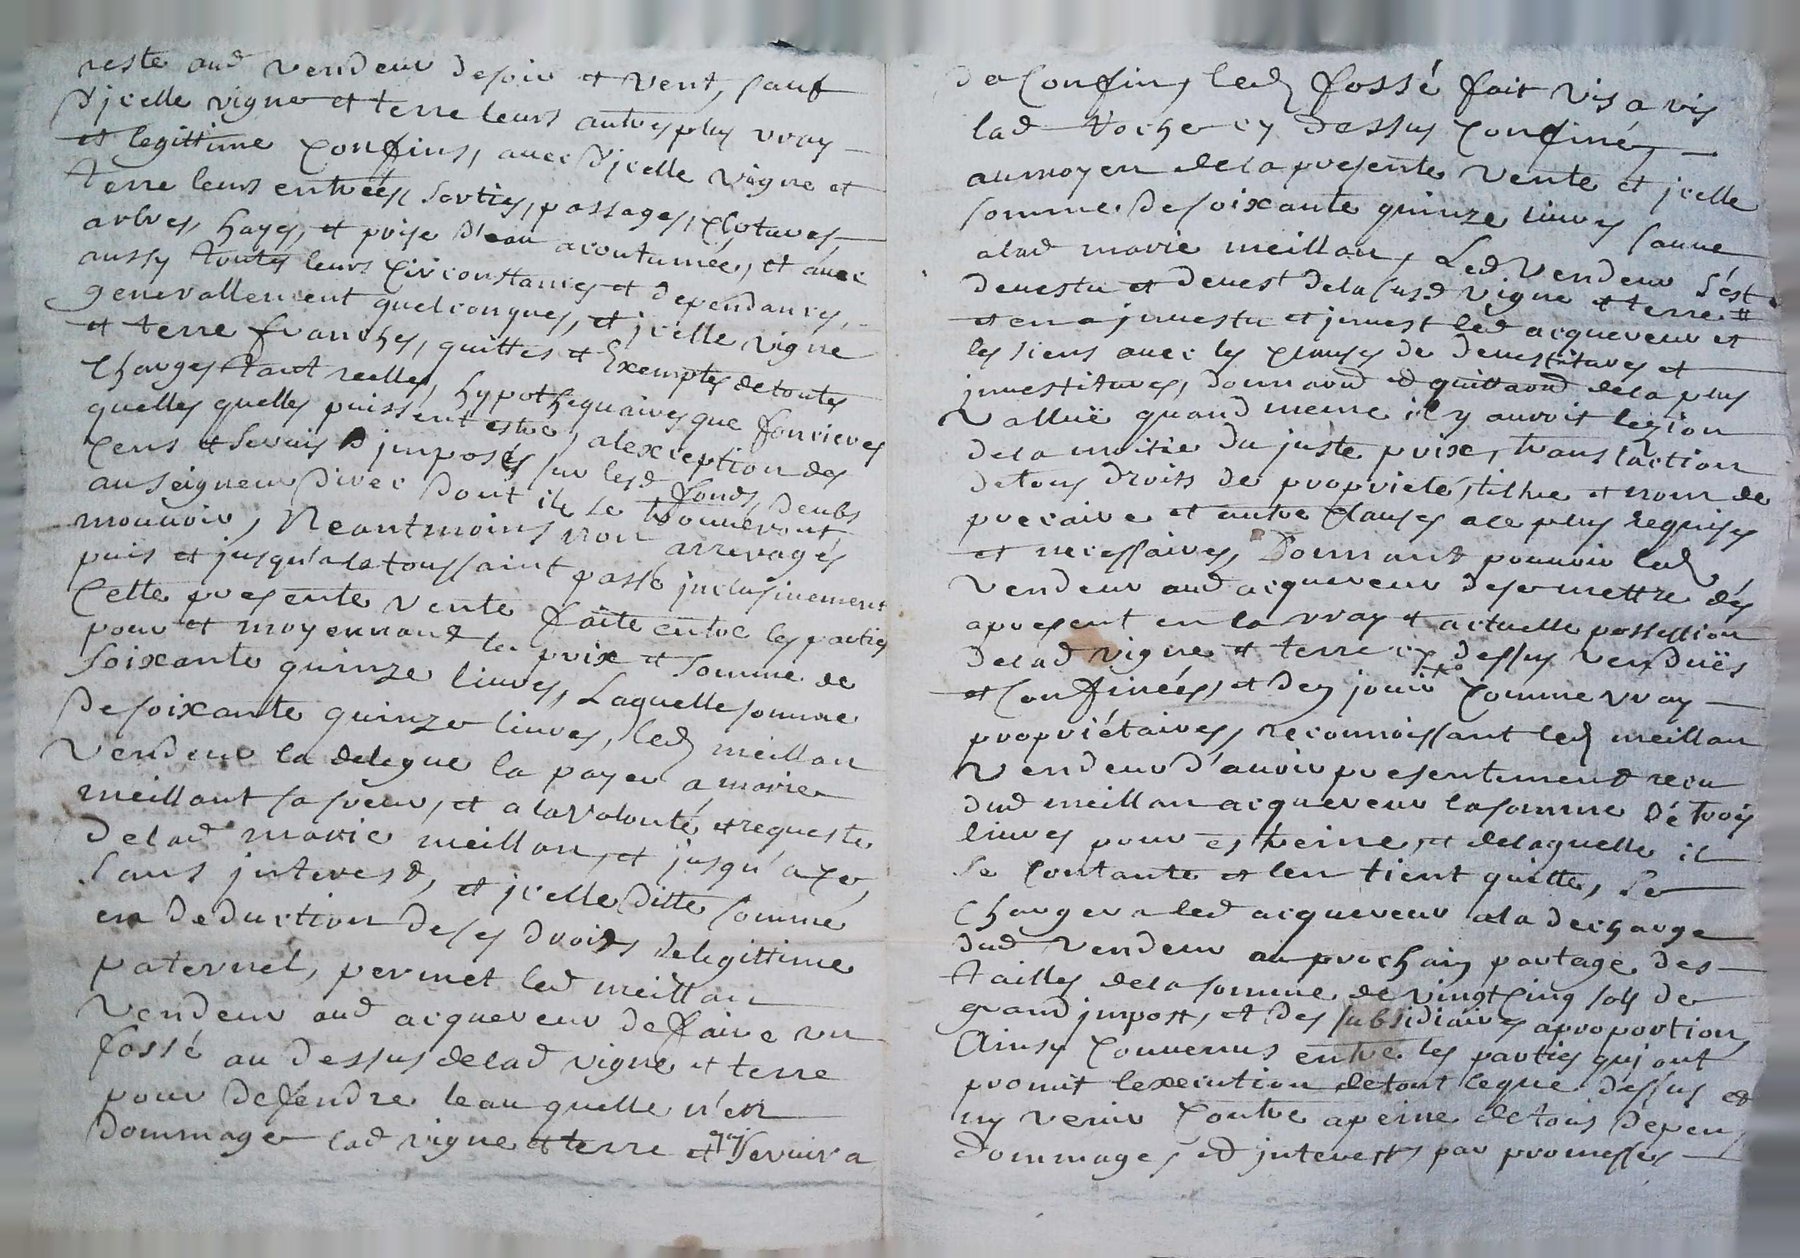 reste aud vendeur de soir et vent, sauf
d'jcelle vigne et terre leurs autres plus vray
et legittime confins, avec d'jcelle vigne et
terre leurs entrées, sorties, passages, clotures,
arbres, hayes, et prise d'eau acoutumée, et avec
aussy toutes leurs circonstances et dependances,
generallement quelconques, et jcelle vigne
et terre franches, quittes et Exemptes de toutes
charges tant reelles, hypothequaires que foncieres
quelles quelles puissent estre, alexception des
cens et servis jmposés sur lesd fonds, deubs
au seigneur direc dont ils se trouveront
mouvoir, Neantmoins non arreragés
puis et jusqu'a la toussaint passé jnclusivement
Cette presente vente faite entre les parties
pour et moyennant le prix et somme de
soixante quinze livres, Laquelle somme
de soixante quinze livres, led meillan
vendeur la delegue la payer a marie
meillant sa sœur, et a la volonté et requeste
de lad marie meillan, et jusqu'a ce,
sans jnterest, et jcelle ditte somme
en deduction de ses droits de legittime
paternel, permet led meillan
vendeur aud acquereur de faire un
fossé au dessus de lad vigne et terre
pour defendre leau quelle n'en
dommage lad vigne et terre et qui servira
de Confin, led fossé fait vis a vis
lad roche cy dessus confiné,
au moyen de la presente vente et jcelle
somme de soixante quinze livres
a lad marie meillan, Led vendeur s'est
devestu et devest de la susd vigne et terre
et en a jnvestu et jnvest led acquereur et
les siens avec les clauses de devestitures et
jnvestitures, donnand et quittand de la plus
valluë quand meme il y auroit lezion
de la moitié du juste prix, translaction
de tous droits de proprieté, tiltre et nom de
precaire et autre clauses a ce plus requises
et necessaires, Donnant pouvoir led
vendeur aud acquereur de se mettre dés
apresent en la vray et actuelle possession
de lad vigne et terre cy dessus venduës
et Confinées, et den jouir comme vray
propriétaires, reconnoissant led meillan
vendeur d'avoir presentement recu
dud meillan acquereur la somme dé trois
livres pour et de laquelle il
se contante et len tient quitte, se
chargera led acquereur a la decharge
dud vendeur au prochain partage des
tailles de la somme de vingt cinq sols de
grand jmpost, et des subsidiaires aproportion,
Ainsy convenus entre les parties qui ont
promit lexecution de tout ceque dessus et
ny venir contre apeine de tous depens,
dommages et jnterests par promesses